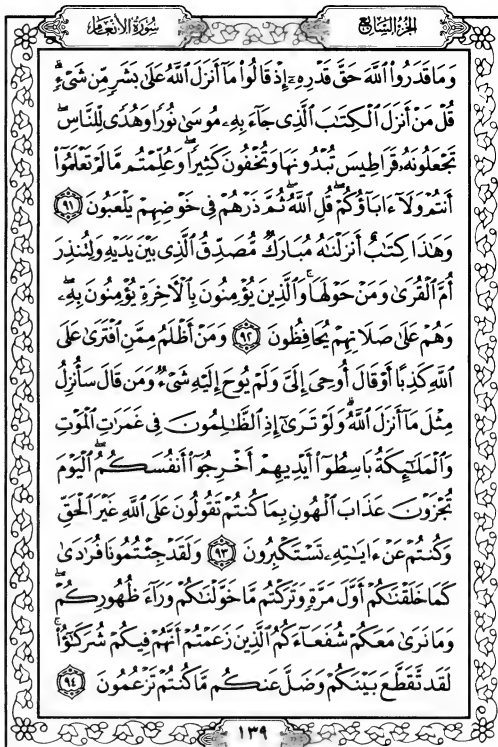 سُورَةُ الأَنْعَامِ
الجُزْءُ السَّابِعُ
وَمَا قَدَرُوا۟ ٱللَّهَ حَقَّ قَدْرِهِۦٓ إِذْ قَالُوا۟ مَآ أَنزَلَ ٱللَّهُ عَلَىٰ بَشَرٍ مِّن شَىْءٍ ۗ
قُلْ مَنْ أَنزَلَ ٱلْكِتَٰبَ ٱلَّذِى جَآءَ بِهِۦ مُوسَىٰ نُورًا وَهُدًى لِّلنَّاسِ ۖ
تَجْعَلُونَهُۥ قَرَاطِيسَ تُبْدُونَهَا وَتُخْفُونَ كَثِيرًا ۖ وَعُلِّمْتُم مَّا لَمْ تَعْلَمُوٓا۟
أَنتُمْ وَلَآ ءَابَآؤُكُمْ ۖ قُلِ ٱللَّهُ ۖ ثُمَّ ذَرْهُمْ فِى خَوْضِهِمْ يَلْعَبُونَ ٩١
وَهَٰذَا كِتَٰبٌ أَنزَلْنَٰهُ مُبَارَكٌ مُّصَدِّقُ ٱلَّذِى بَيْنَ يَدَيْهِ وَلِتُنذِرَ
أُمَّ ٱلْقُرَىٰ وَمَنْ حَوْلَهَا ۚ وَٱلَّذِينَ يُؤْمِنُونَ بِٱلْءَاخِرَةِ يُؤْمِنُونَ بِهِۦ ۖ
وَهُمْ عَلَىٰ صَلَاتِهِمْ يُحَافِظُونَ ٩٢ وَمَنْ أَظْلَمُ مِمَّنِ ٱفْتَرَىٰ عَلَى
ٱللَّهِ كَذِبًا أَوْ قَالَ أُوحِىَ إِلَىَّ وَلَمْ يُوحَ إِلَيْهِ شَىْءٌ وَمَن قَالَ سَأُنزِلُ
مِثْلَ مَآ أَنزَلَ ٱللَّهُ ۗ وَلَوْ تَرَىٰٓ إِذِ ٱلظَّٰلِمُونَ فِى غَمَرَٰتِ ٱلْمَوْتِ
وَٱلْمَلَٰٓئِكَةُ بَاسِطُوٓا۟ أَيْدِيهِمْ أَخْرِجُوٓا۟ أَنفُسَكُمُ ۖ ٱلْيَوْمَ
تُجْزَوْنَ عَذَابَ ٱلْهُونِ بِمَا كُنتُمْ تَقُولُونَ عَلَى ٱللَّهِ غَيْرَ ٱلْحَقِّ
وَكُنتُمْ عَنْ ءَايَٰتِهِۦ تَسْتَكْبِرُونَ ٩٣ وَلَقَدْ جِئْتُمُونَا فُرَٰدَىٰ
كَمَا خَلَقْنَٰكُمْ أَوَّلَ مَرَّةٍ وَتَرَكْتُم مَّا خَوَّلْنَٰكُمْ وَرَآءَ ظُهُورِكُمْ ۖ
وَمَا نَرَىٰ مَعَكُمْ شُفَعَآءَكُمُ ٱلَّذِينَ زَعَمْتُمْ أَنَّهُمْ فِيكُمْ شُرَكَٰٓؤُا۟ ۚ
لَقَد تَّقَطَّعَ بَيْنَكُمْ وَضَلَّ عَنكُم مَّا كُنتُمْ تَزْعُمُونَ ٩٤
١٣٩